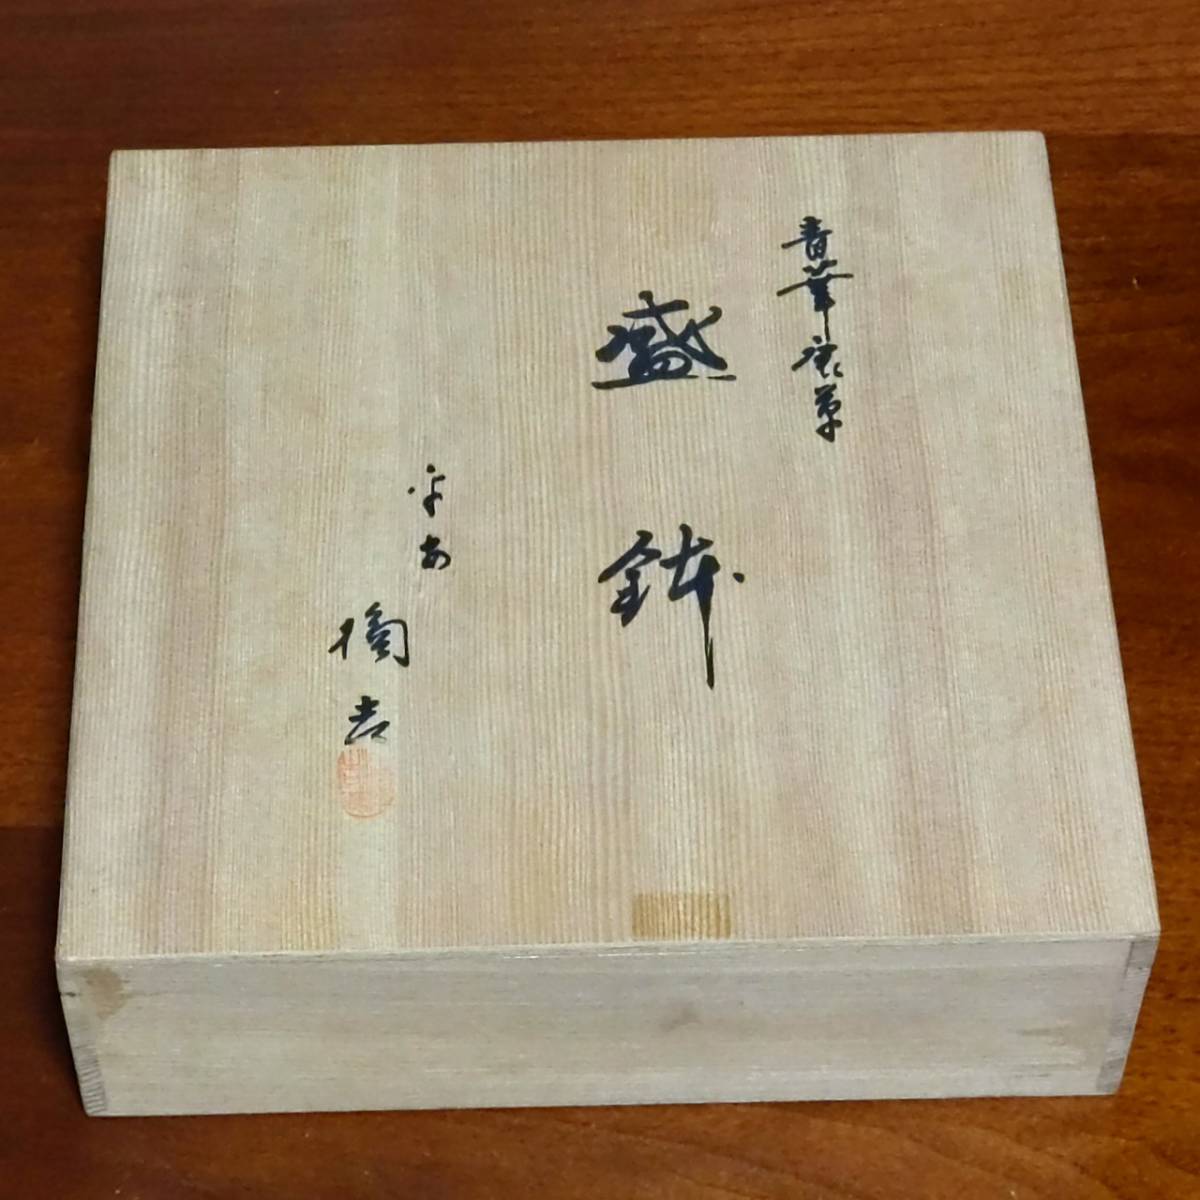 青華唐草
盛鉢
平安
陶吉